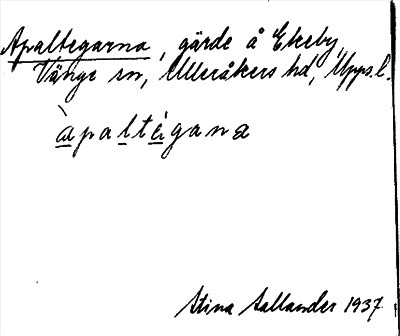 Apaltegarna, gärde å Ekeby,
Vänge sn, Ulleråkers hd, Upps.l.
àpaltégana
Stina Sallander 1937